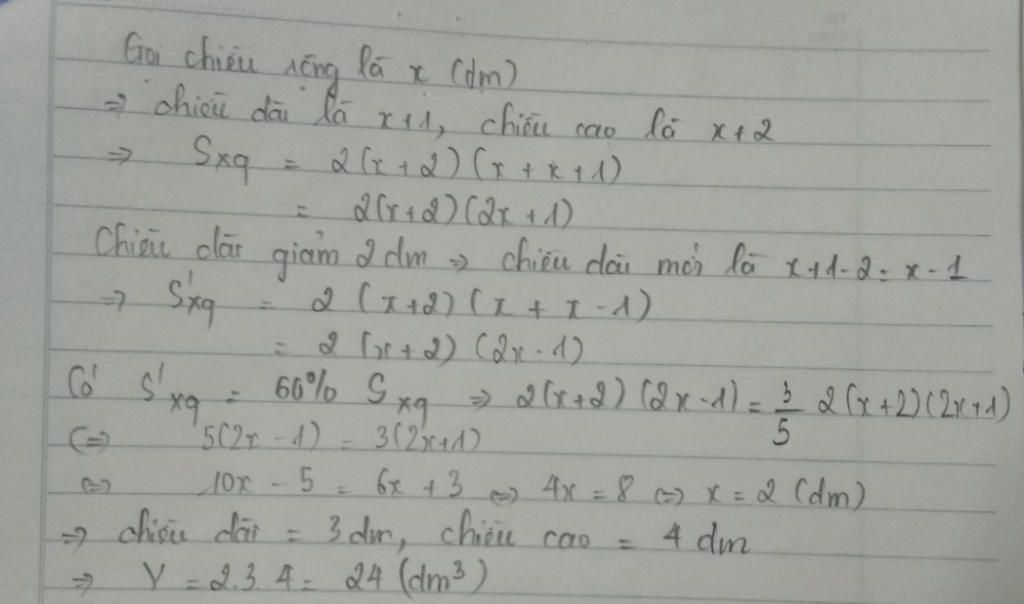 Gọi chiều rộng là x (dm)
=> chiều dài là x+1, chiều cao là x+2
=> Sxq = 2(x+2)(x+x+1)
= 2(x+2)(2x+1)
Chiều dài giảm 2dm => chiều dài mới là x+1-2=x-1
=> S'xq = 2(x+2)(x+x-1)
= 2(x+2)(2x-1)
Có S'xq = 60% Sxq => 2(x+2)(2x-1)=3/5 2(x+2)(2x+1)
<=> 5(2x-1) = 3(2x+1)
<=> 10x - 5 = 6x + 3 <=> 4x = 8 <=> x = 2 (dm)
=> chiều dài = 3dm, chiều cao = 4 dm
=> V = 2.3.4 = 24 (dm³)